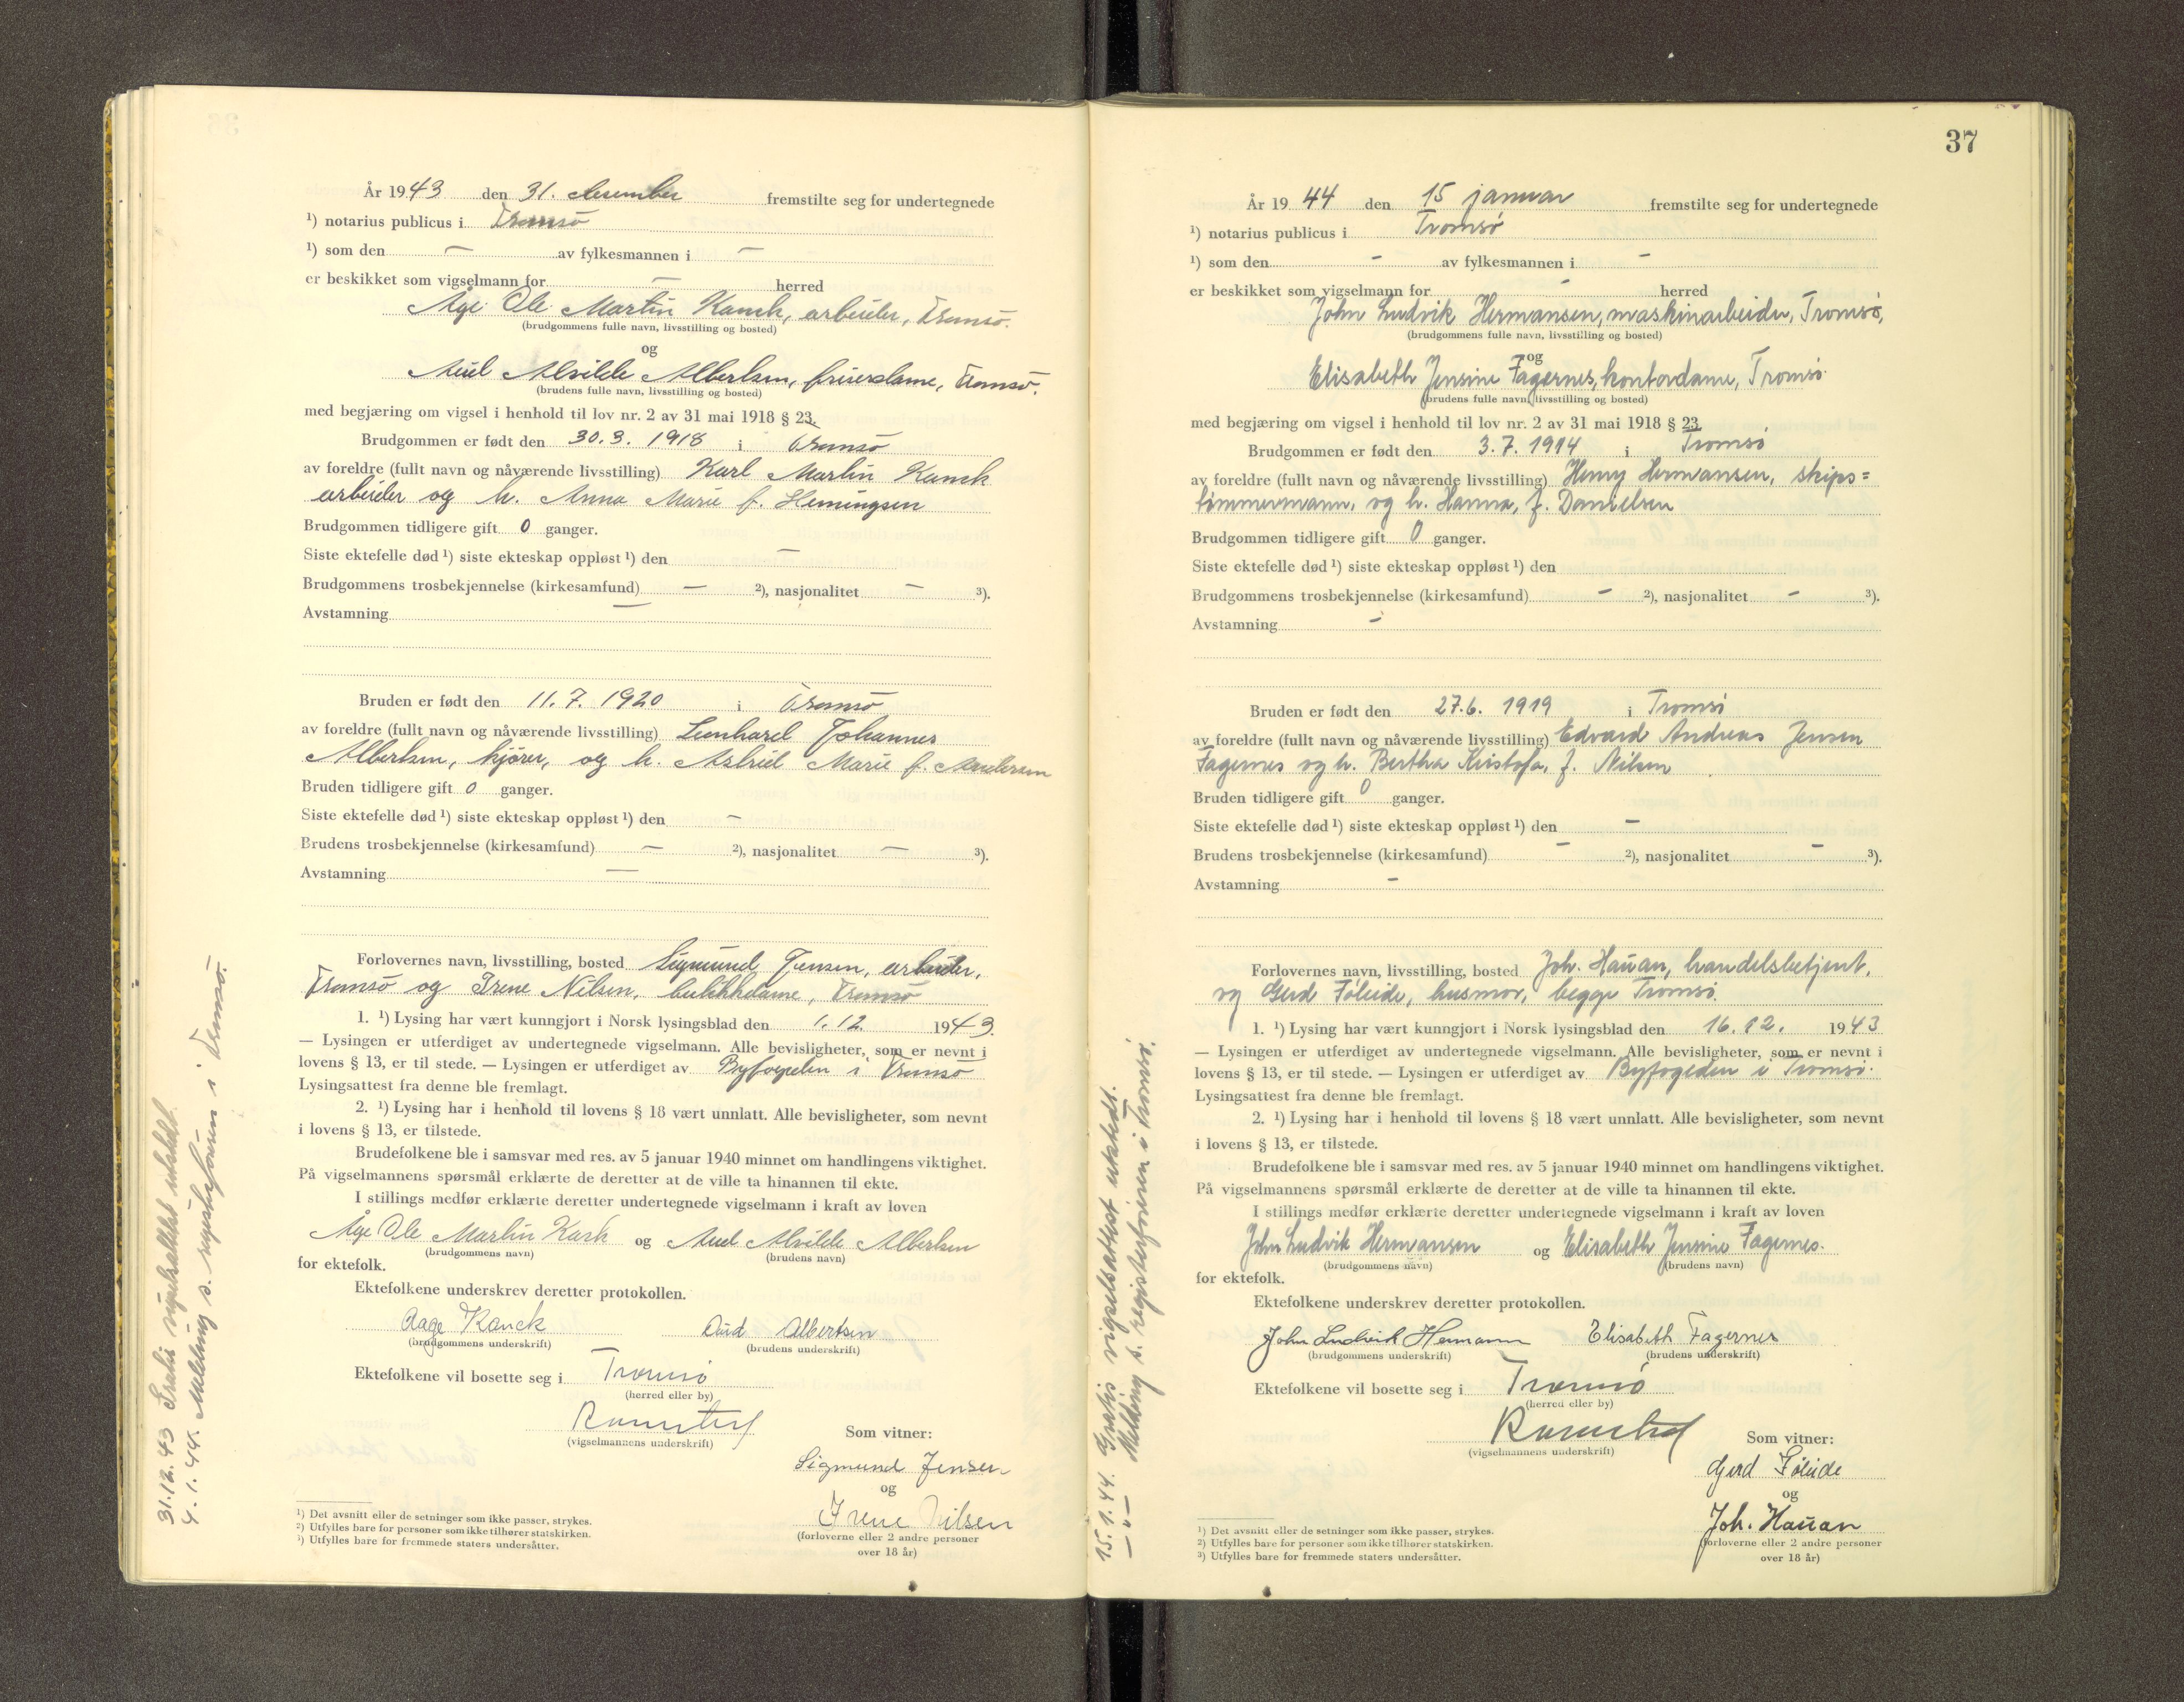 År 1943 den 31. desember fremstilte seg for undertegnede
¹) notarius publicus i Tromsø
¹) som den — av fylkesmannen i —
er beskikket som vigselmann for — herred
Åge Ole Martin Kanck, arbeider, Tromsø.
(brudgommens fulle navn, livsstilling og bosted)
og
Aud Alvilde Albertsen, frisørdame, Tromsø.
(brudens fulle navn, livsstilling og bosted)
med begjæring om vigsel i henhold til lov nr. 2 av 31 mai 1918 § 23.
Brudgommen er født den 30.3. 1918 i Tromsø
av foreldre (fullt navn og nåværende livsstilling) Karl Martin Kanck
arbeider og h. Anna Marie f. Hemingsen
Brudgommen tidligere gift 0 ganger.
Siste ektefelle død ¹) siste ekteskap oppløst ¹) den —
Brudgommens trosbekjennelse (kirkesamfund) — ²), nasjonalitet — ³).
Avstamning —
Bruden er født den 11. 7. 1920 i Tromsø
av foreldre (fullt navn og nåværende livsstilling) Leonhard Johannes
Albertsen, kjører, og h. Astrid Marie f. Andersen
Bruden tidligere gift 0 ganger.
Siste ektefelle død ¹) siste ekteskap oppløst ¹) den —
Brudens trosbekjennelse (kirkesamfund) — ²), nasjonalitet — ³).
Avstamning —
Forlovernes navn, livsstilling, bosted Sigmund Jensen, arbeider,
Tromsø og Irene Nilsen, butikkdame, Tromsø
1. ¹) Lysing har vært kunngjort i Norsk lysingsblad den 1.12. 1943.
— Lysingen er utferdiget av undertegnede vigselmann. Alle bevisligheter, som er nevnt i
lovens § 13, er til stede. — Lysingen er utferdiget av Byfogden i Tromsø
Lysingsattest fra denne ble fremlagt.
2. ¹) Lysing har i henhold til lovens § 18 vært unnlatt. Alle bevisligheter, som nevnt
i lovens § 13, er tilstede.
Brudefolkene ble i samsvar med res. av 5 januar 1940 minnet om handlingens viktighet.
På vigselmannens spørsmål erklærte de deretter at de ville ta hinannen til ekte.
I stillings medfør erklærte deretter undertegnede vigselmann i kraft av loven
Åge Ole Martin Kank og Aud Alvilde Albertsen
(brudgommens navn) (brudens navn)
for ektefolk.
Ektefolkene underskrev deretter protokollen.
Aage Kanck Aud Albertsen
(brudgommens underskrift) (brudens underskrift)
Ektefolkene vil bosette seg i Tromsø
(herred eller by)
(vigselmannens underskrift) Som vitner:
Sigmund Jensen
og
Irene Nilsen
(forloverne eller 2 andre personer
over 18 år)
¹) Det avsnitt eller de setninger som ikke passer, strykes.
²) Utfylles bare for personer som ikke tilhører statskirken.
³) Utfylles bare for fremmede staters undersåtter.
31.12.43 Gratis vigselsattest utstedt.
4. 1. 44. Melding s. registerføreren i Tromsø.
37
År 1944 den 15 januar fremstilte seg for undertegnede
¹) notarius publicus i Tromsø
¹) som den - av fylkesmannen i -
er beskikket som vigselmann for - herred
John Ludvik Hermansen, maskinarbeider, Tromsø,
(brudgommens fulle navn, livsstilling og bosted)
og
Elisabeth Jensine Fagernes, kontordame, Tromsø.
(brudens fulle navn, livsstilling og bosted)
med begjæring om vigsel i henhold til lov nr. 2 av 31 mai 1918 § 23.
Brudgommen er født den 3.7. 1914 i Tromsø
av foreldre (fullt navn og nåværende livsstilling) Henry Hermansen, skips=
tømmermann, og h. Hanna, f. Danielsen
Brudgommen tidligere gift 0 ganger.
Siste ektefelle død ¹) siste ekteskap oppløst ¹) den
Brudgommens trosbekjennelse (kirkesamfund) - ²), nasjonalitet - ³).
Avstamning -
Bruden er født den 27.6. 1919 i Tromsø
av foreldre (fullt navn og nåværende livsstilling) Edvard Andreas Jensen
Fagernes og h. Bertha Kristofa, f. Nilsen
Bruden tidligere gift 0 ganger.
Siste ektefelle død ¹) siste ekteskap oppløst ¹) den -
Brudens trosbekjennelse (kirkesamfund) - ²), nasjonalitet - ³).
Avstamning -
Forlovernes navn, livsstilling, bosted Joh. Hauan, handelsbetjent,
og Gerd Føleide, husmor, begge Tromsø.
1. ¹) Lysing har vært kunngjort i Norsk lysingsblad den 16.12. 1943
— Lysingen er utferdiget av undertegnede vigselmann. Alle bevisligheter, som er nevnt i
lovens § 13, er til stede. — Lysingen er utferdiget av Byfogden i Tromsø.
Lysingsattest fra denne ble fremlagt.
2. ¹) Lysing har i henhold til lovens § 18 vært unnlatt. Alle bevisligheter, som nevnt
i lovens § 13, er tilstede.
Brudefolkene ble i samsvar med res. av 5 januar 1940 minnet om handlingens viktighet.
På vigselmannens spørsmål erklærte de deretter at de ville ta hinannen til ekte.
I stillings medfør erklærte deretter undertegnede vigselmann i kraft av loven
John Ludvik Hermansen og Elisabeth Jensine Fagernes.
(brudgommens navn) (brudens navn)
for ektefolk.
Ektefolkene underskrev deretter protokollen.
John Ludvik Hermansen Elisabeth Fagernes
(brudgommens underskrift) (brudens underskrift)
Ektefolkene vil bosette seg i Tromsø
(herred eller by)
(vigselmannens underskrift) Som vitner:
Gerd Føleide
og
Joh. Hauan
(forloverne eller 2 andre personer
over 18 år)
¹) Det avsnitt eller de setninger som ikke passer, strykes.
²) Utfylles bare for personer som ikke tilhører statskirken.
³) Utfylles bare for fremmede staters undersåtter.
15.1.44. Gratis vigselsattest utstedt.
—"— Melding s. registerføreren i Tromsø.